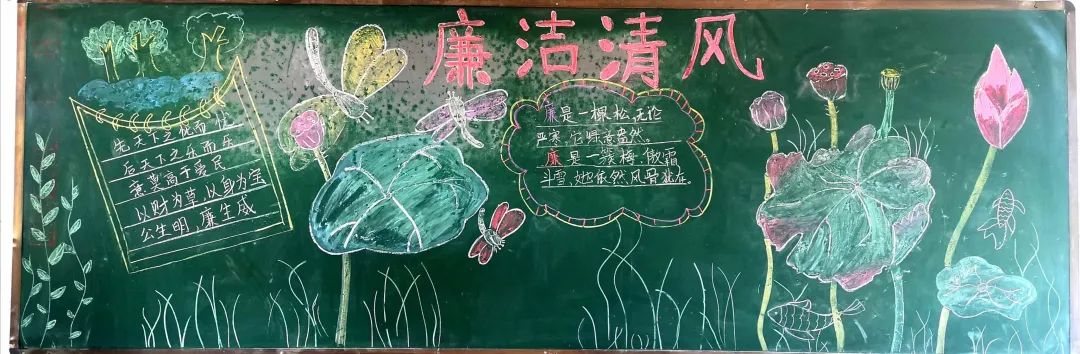 廉洁清风
先天下之忧而忧
后天下之乐而乐
意莫高于爱民
以财为草,以身为宝
公生明,廉生威
廉是一棵松,无论
严寒,它归意盎然。
廉是一簇梅,傲霜
斗雪,她依然风骨犹在。